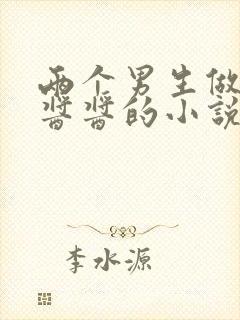 两个男生做
酱酱的小说
李水源